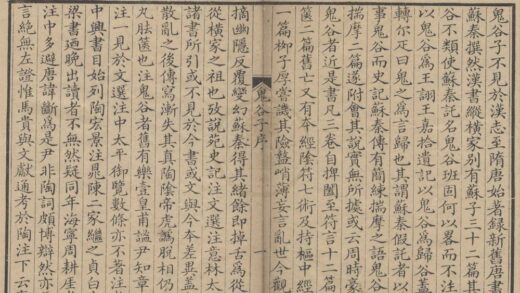 鬼谷子不見於漢志至隋唐始著錄新舊唐書
蘇秦撰然漢書縱橫家別有蘇子三十一篇其
谷不類使蘇秦託名鬼谷班固何以畧而不注
以鬼谷爲王詡王嘉拾遺記以鬼谷爲歸谷蓋
轉尒疋曰鬼之爲言歸也其謂蘇秦假託者以
事鬼谷而史記蘇秦傳有簡練揣摩之語鬼谷
揣摩二篇遂附會其說實無所據或云周時豪
鬼谷者近是書凡三卷自捭闔至符言十二篇
篋二篇舊亡又有本經陰符七術及持樞中經
一篇柳子厚嘗譏其險盭峭薄妄言亂世今觀
鬼谷子序 一
摘幽隱反覆變幻蘇秦得其緒餘即掉舌爲從
從橫家之祖也攷說苑史記注文選注意林太
諸書所引或不見於今書或文與今本差異蓋
散亂之後傳寫漸失其眞陶陰帝虎譌脫相仍
胠篋也注鬼谷者舊有樂壹皇甫謐尹知章
注一見於文選注中太平御覽數條亦不著注
中興書目始列陶宏景注晁陳二家繼之貞白
梁書迺晚出讀者不無然疑同年海寧周耕厓
注中多避唐諱斷爲是尹非陶詞頗博辯然亦
言絶無左證惟馬貴與文獻通考於陶注下云